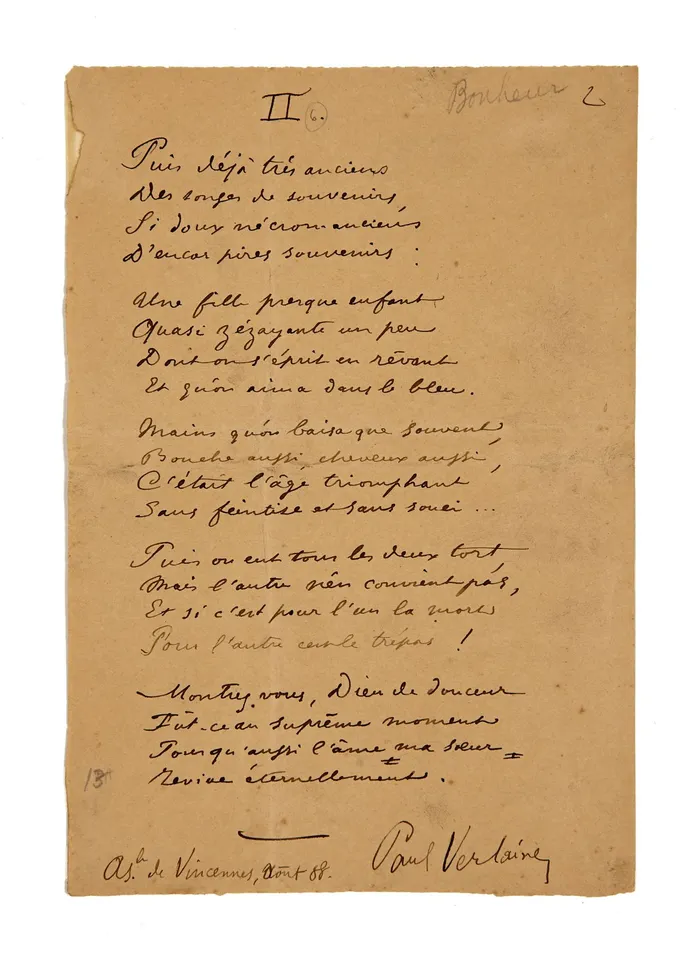 II 6. Bonheur 2
Puis déjà très anciens
Des songes de souvenirs,
Si doux nécromanciens
D'encor pires souvenirs :
Une fille presque enfant
Quasi zézayante un peu
Dont on s'éprit en rêvant
Et qu'on aima dans le bleu.
Mains qu'on baisa que souvent,
Bouche aussi, cheveux aussi,
C'était l'âge triomphant
Sans feintise et sans souci ...
Puis on eut tous les deux tort,
Mais l'autre n'en convient pas,
Et si c'est pour l'un la mort
Pour l'autre c'est le trépas !
Montrez vous, Dieu de douceur
Fût-ce au suprême moment
Pour qu'aussi l'âme ma sœur
Revive éternellement.
13
As.le de Vincennes, Août 88.
Paul Verlaine